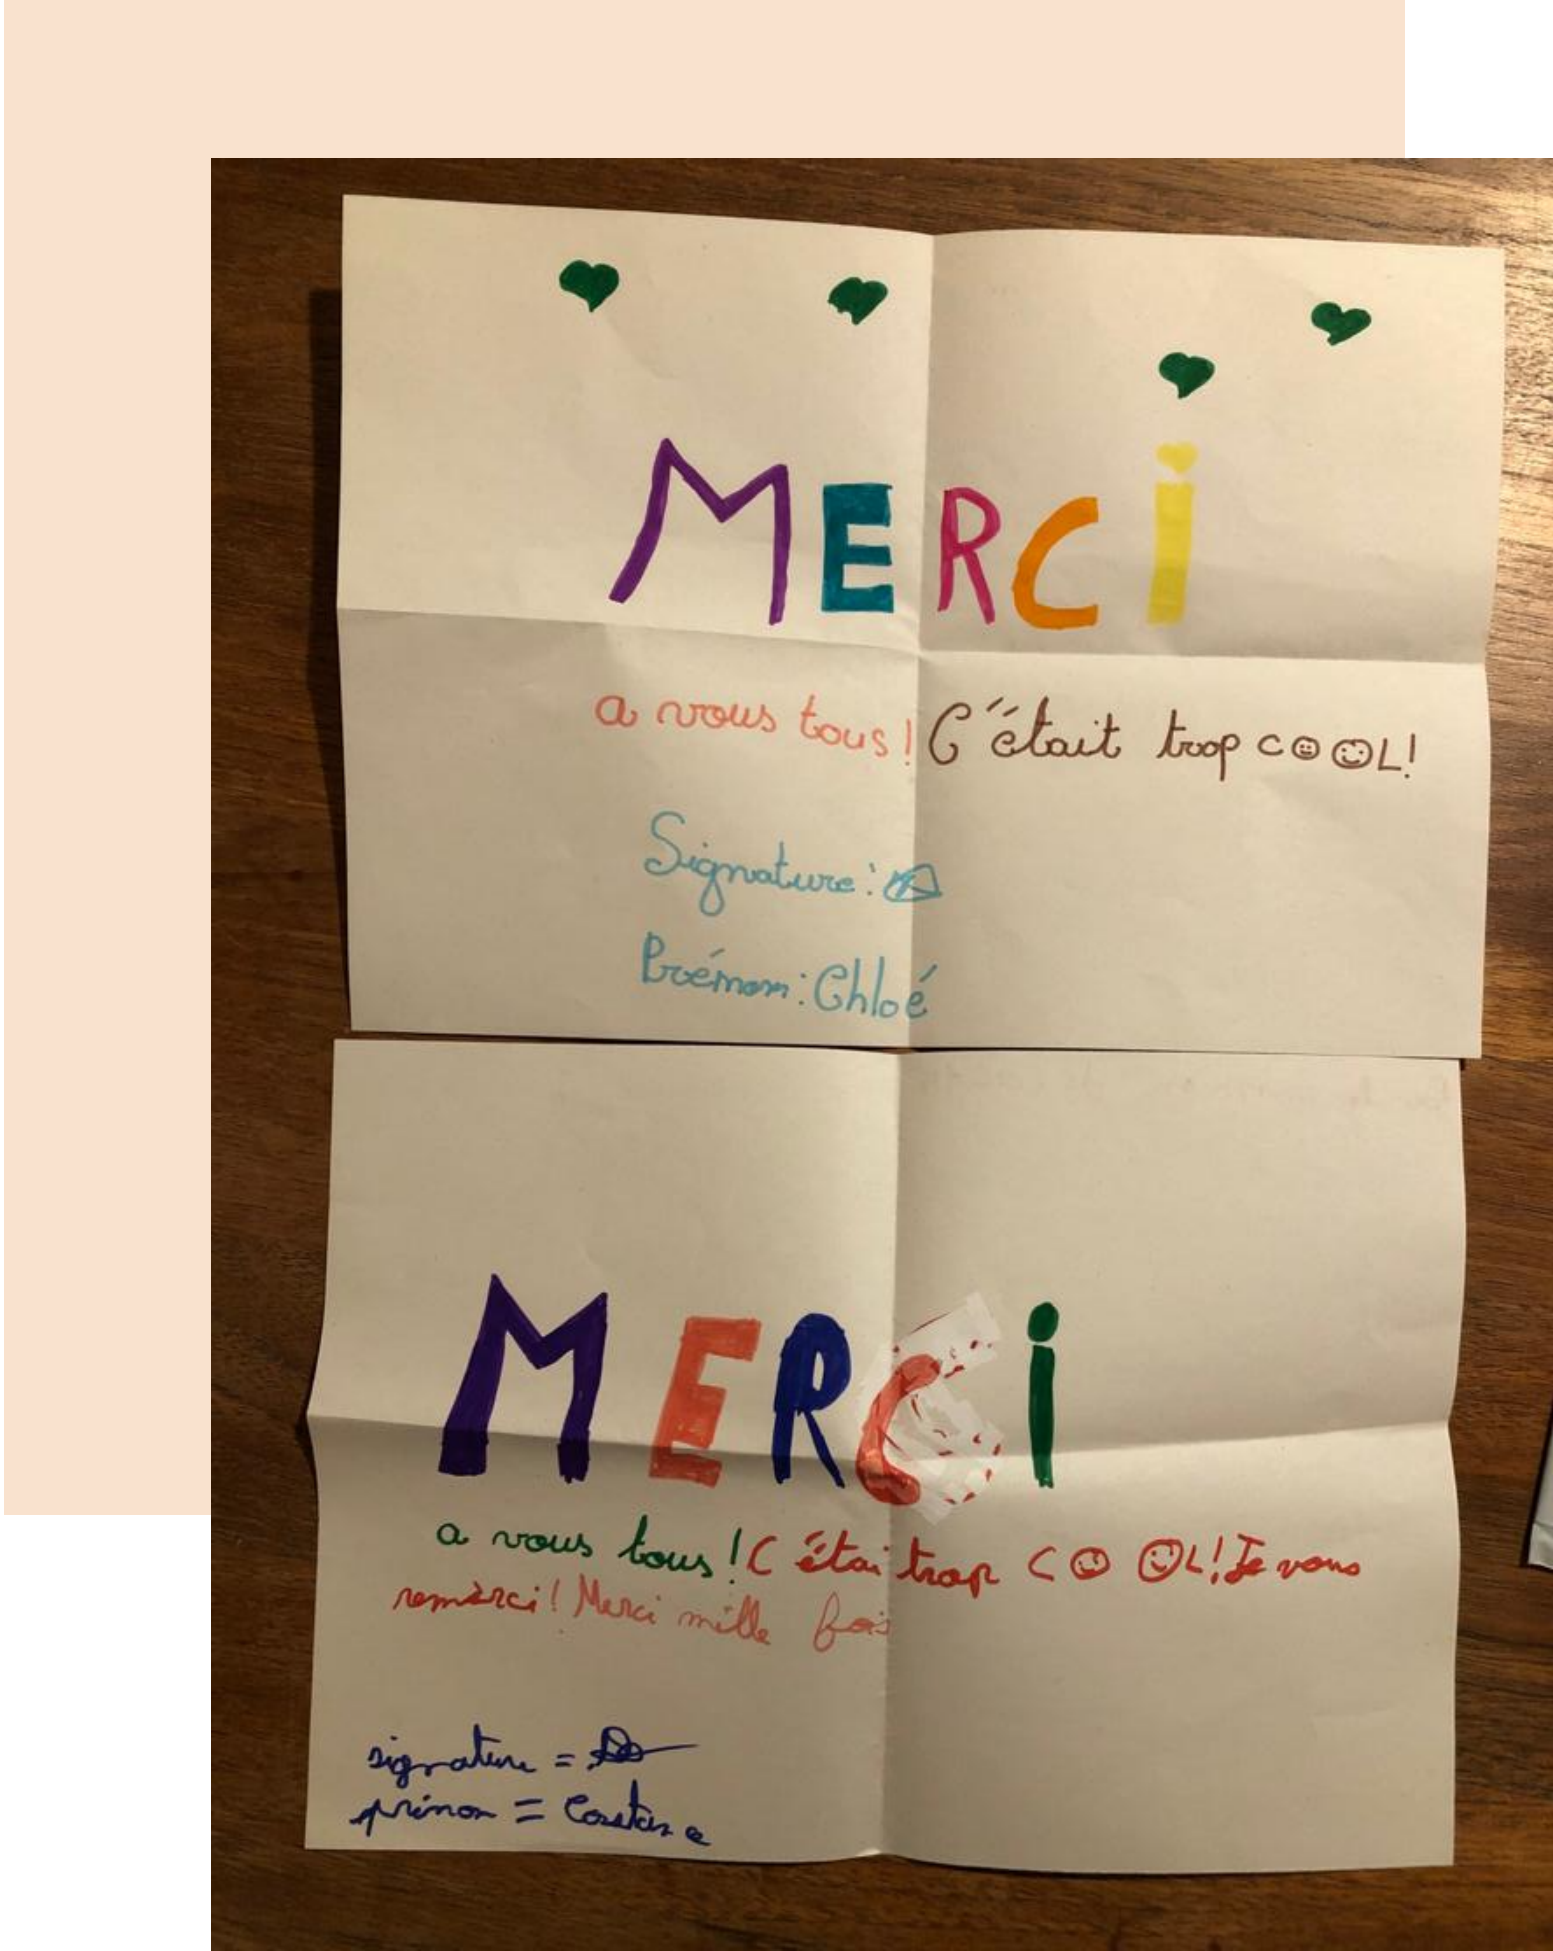 MERCI
a vous tous! C'était trop cOOL!
Signature:
Prénom: Chloé
MERCI
a vous tous! C'étai trop COOL! Je vous
remerci! Merci mille fois
signature =
prénon =